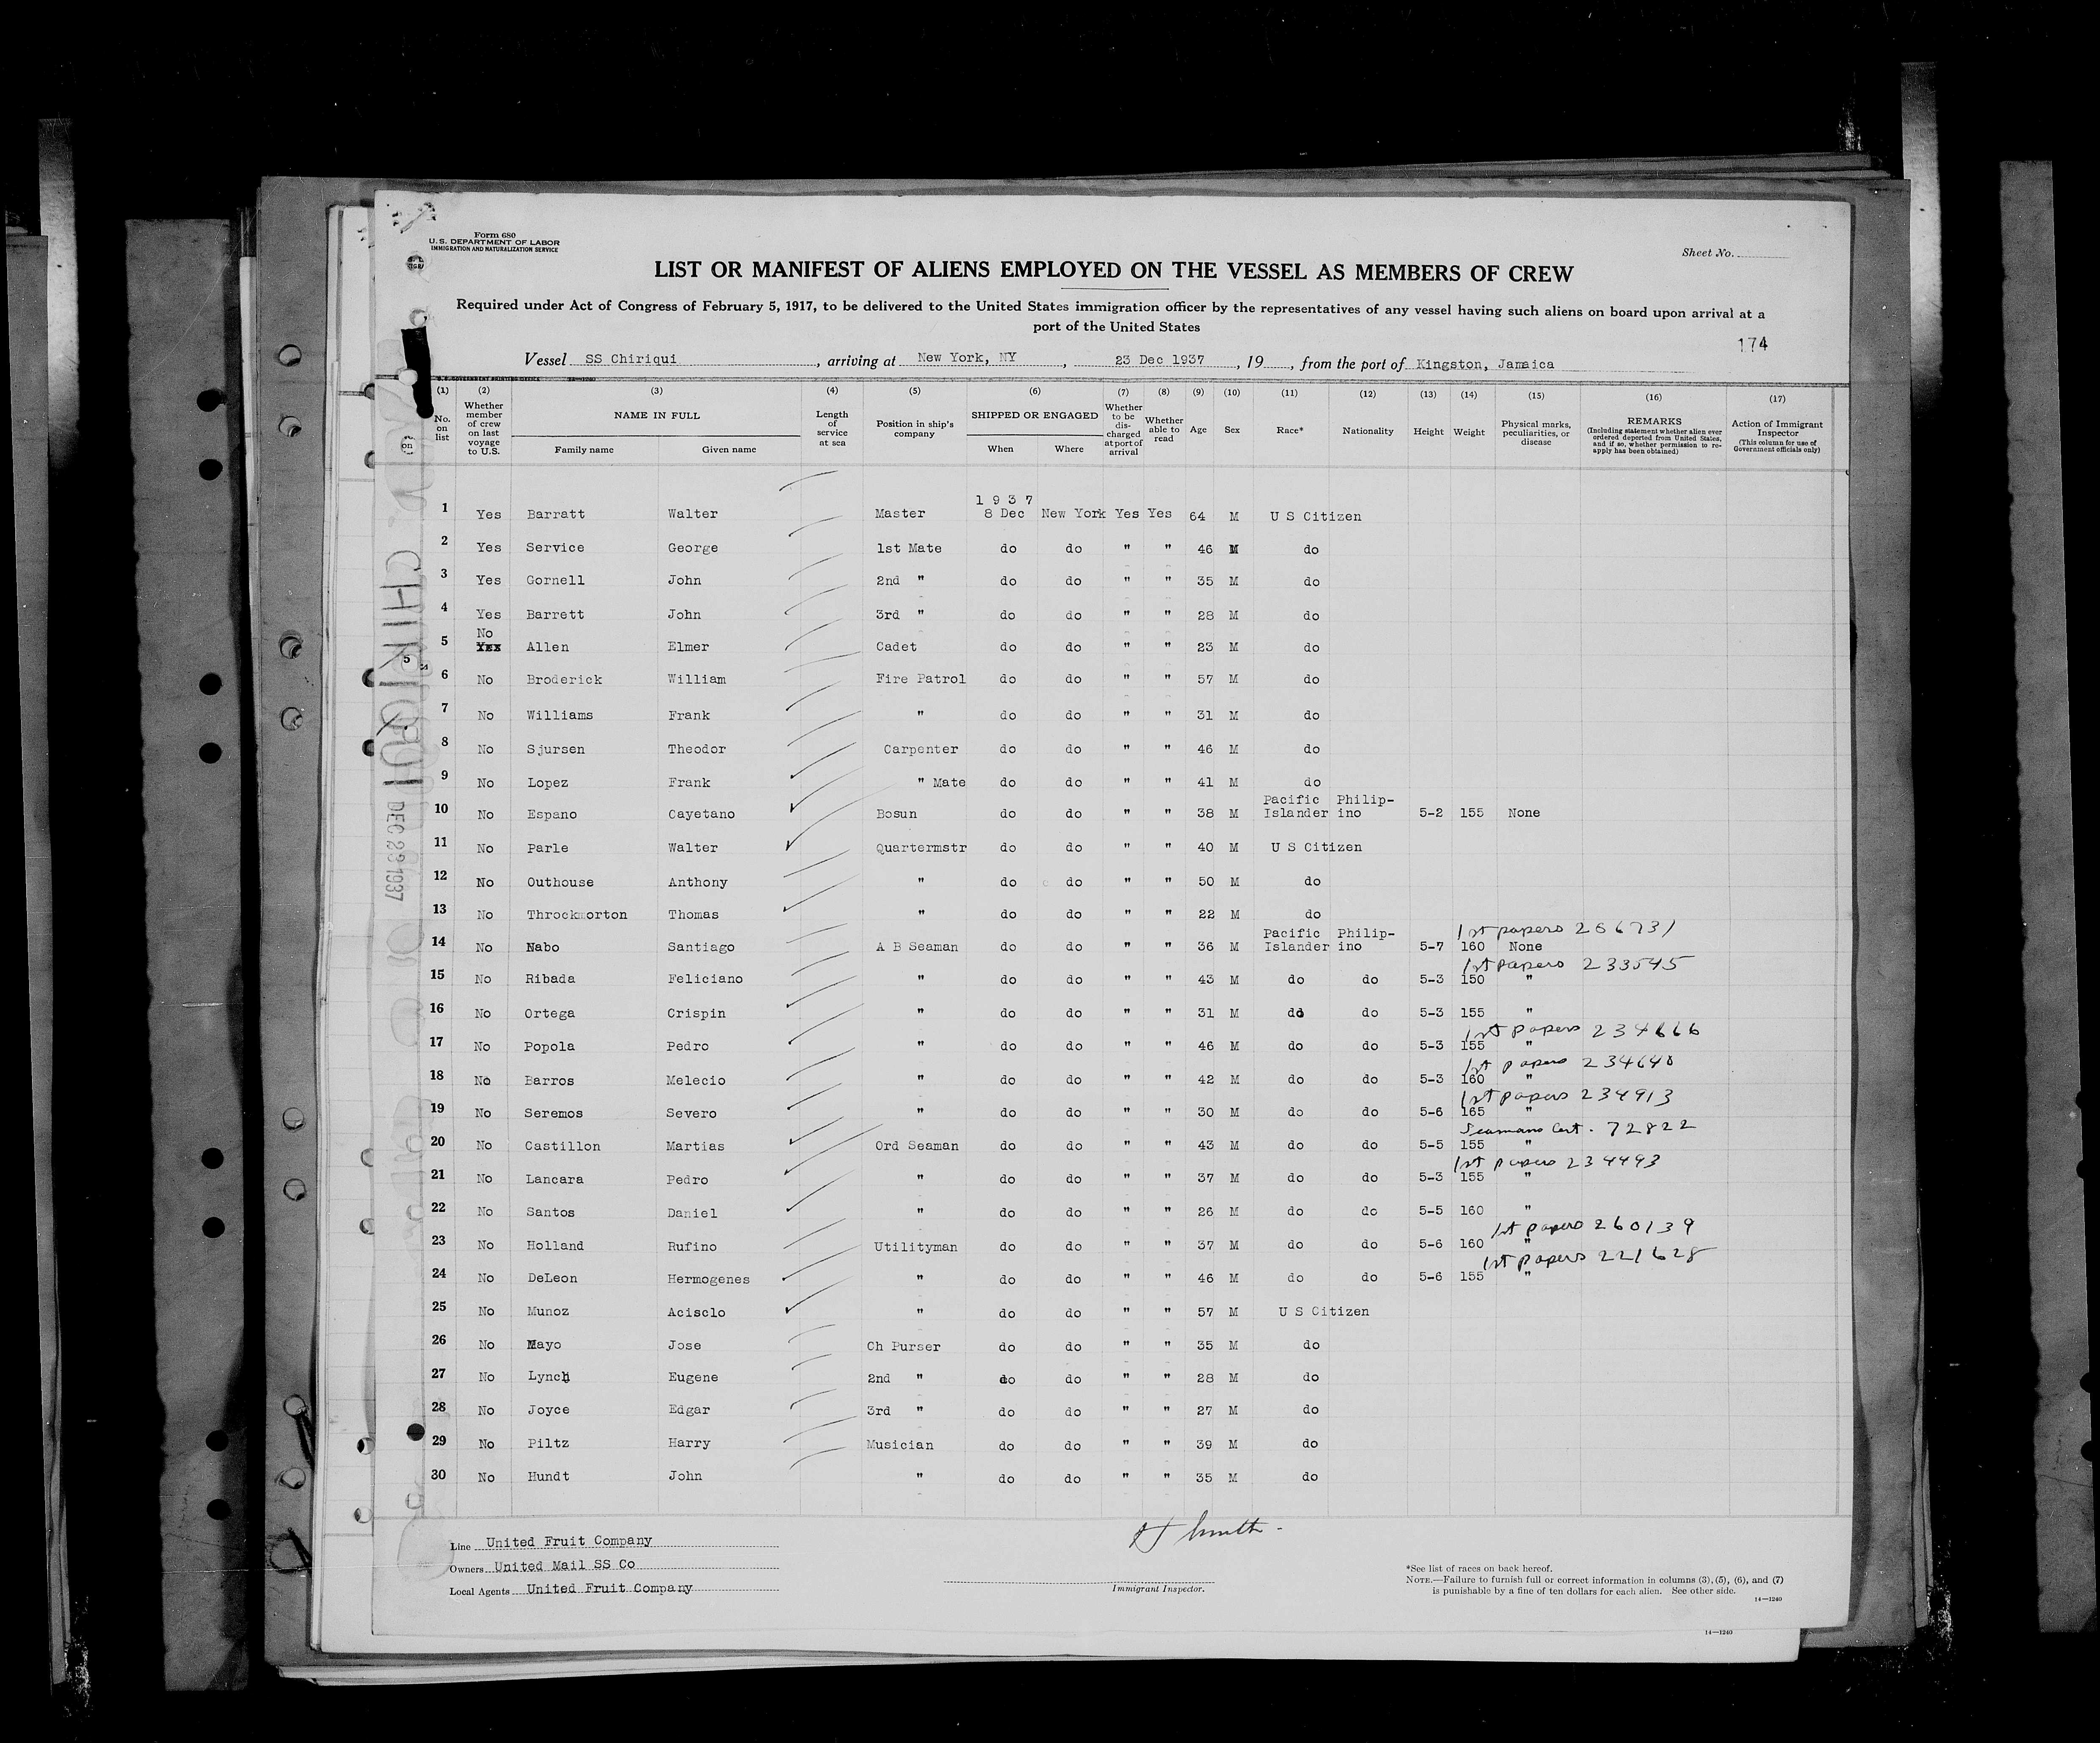 Form 680
U. S. DEPARTMENT OF LABOR
IMMIGRATION AND NATURALIZATION SERVICE
Sheet No.
LIST OR MANIFEST OF ALIENS EMPLOYED ON THE VESSEL AS MEMBERS OF CREW
Required under Act of Congress of February 5, 1917, to be delivered to the United States immigration officer by the representatives of any vessel having such aliens on board upon arrival at a
port of the United States
174
Vessel SS Chiriqui, arriving at New York, NY, 23 Dec 1937, 19, from the port of Kingston, Jamaica
(1) (2) (3) (4) (5) (6) (7) (8) (9) (10) (11) (12) (13) (14) (15) (16) (17)
No. on list
Whether member of crew on last voyage to U.S.
NAME IN FULL
Family name Given name
Length of service at sea
Position in ship's company
SHIPPED OR ENGAGED
When Where
Whether to be discharged at port of arrival
Whether able to read
Age
Sex
Race*
Nationality
Height
Weight
Physical marks, peculiarities, or disease
REMARKS
(Including statement whether alien ever ordered deported from United States, and if so, whether permission to reapply has been obtained)
Action of Immigrant Inspector
(This column for use of Government officials only)
1937
1 Yes Barratt Walter Master 8 Dec New York Yes Yes 64 M U S Citizen
2 Yes Service George 1st Mate do do " " 46 M do
3 Yes Gornell John 2nd " do do " " 35 M do
4 Yes Barrett John 3rd " do do " " 28 M do
No
5 Yes Allen Elmer Cadet do do " " 23 M do
6 No Broderick William Fire Patrol do do " " 57 M do
7 No Williams Frank " do do " " 31 M do
8 No Sjursen Theodor Carpenter do do " " 46 M do
9 No Lopez Frank " Mate do do " " 41 M do
Pacific Philip-
10 No Espano Cayetano Bosun do do " " 38 M Islander ino 5-2 155 None
11 No Parle Walter Quartermstr do do " " 40 M U S Citizen
12 No Outhouse Anthony " do do " " 50 M do
13 No Throckmorton Thomas " do do " " 22 M do
Pacific Philip- 1st papers 266731
14 No Nabo Santiago A B Seaman do do " " 36 M Islander ino 5-7 160 None
1st papers 233545
15 No Ribada Feliciano " do do " " 43 M do do 5-3 150 "
16 No Ortega Crispin " do do " " 31 M do do 5-3 155 "
1st papers 234666
17 No Popola Pedro " do do " " 46 M do do 5-3 155 "
1st papers 234640
18 No Barros Melecio " do do " " 42 M do do 5-3 160 "
1st papers 234913
19 No Seremos Severo " do do " " 30 M do do 5-6 165 "
Seamans Cert. 72822
20 No Castillon Martias Ord Seaman do do " " 43 M do do 5-5 155 "
1st papers 234493
21 No Lancara Pedro " do do " " 37 M do do 5-3 155 "
22 No Santos Daniel " do do " " 26 M do do 5-5 160 "
1st papers 260139
23 No Holland Rufino Utilityman do do " " 37 M do do 5-6 160 "
1st papers 221628
24 No DeLeon Hermogenes " do do " " 46 M do do 5-6 155 "
25 No Munoz Acisclo " do do " " 57 M U S Citizen
26 No Mayo Jose Ch Purser do do " " 35 M do
27 No Lynch Eugene 2nd " do do " " 28 M do
28 No Joyce Edgar 3rd " do do " " 27 M do
29 No Piltz Harry Musician do do " " 39 M do
30 No Hundt John " do do " " 35 M do
CHIRIQUI
DEC 23 1937
Line United Fruit Company
Owners United Mail SS Co
Local Agents United Fruit Company
Smith
Immigrant Inspector.
*See list of races on back hereof.
NOTE.—Failure to furnish full or correct information in columns (3), (5), (6), and (7)
is punishable by a fine of ten dollars for each alien. See other side.
14—1240
14—1240